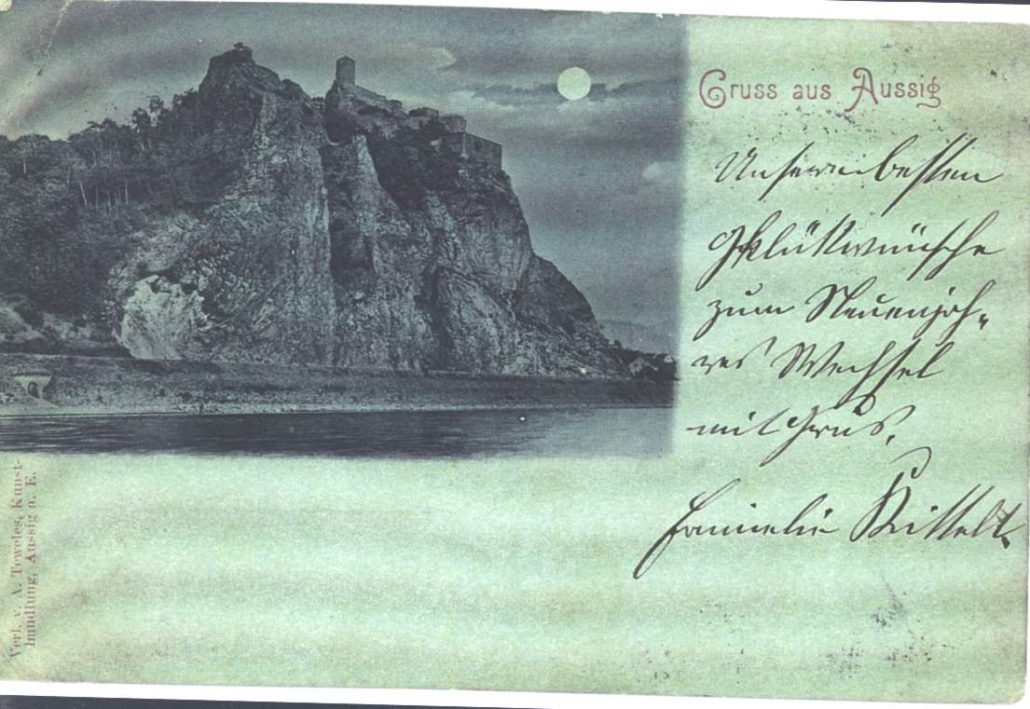 Gruss aus Aussig
Unsere besten
Glükwünsche
zum Neuenjah-
res Wechsel
mit Grus.
Familie
Verl. v. A. Teweles, Kunst-
handlung, Aussig a. E.